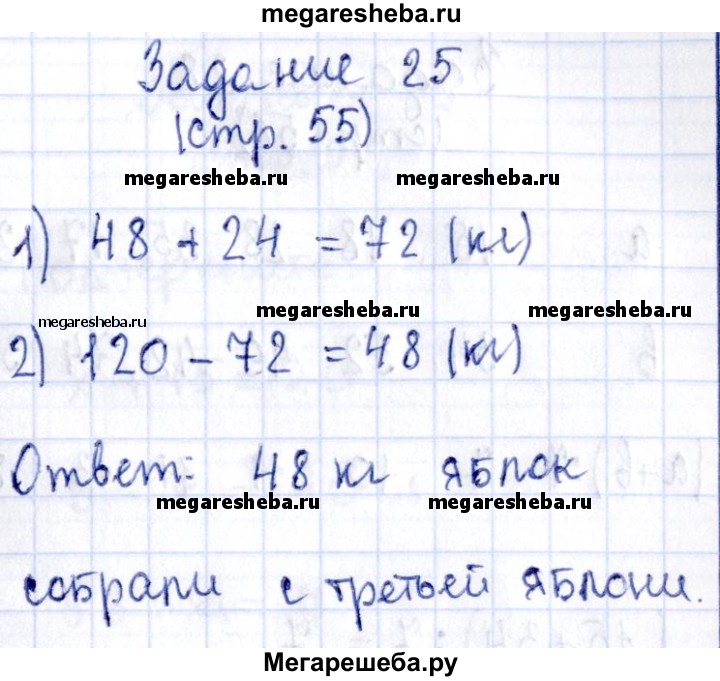 megaresheba.ru
Задание 25
(стр. 55)
megaresheba.ru megaresheba.ru
1) 48 + 24 = 72 (кг)
megaresheba.ru megaresheba.ru megaresheba.ru
2) 120 - 72 = 48 (кг)
Ответ: 48 кг яблок
megaresheba.ru megaresheba.ru
собрали с третьей яблони.
Мегарешеба.ру